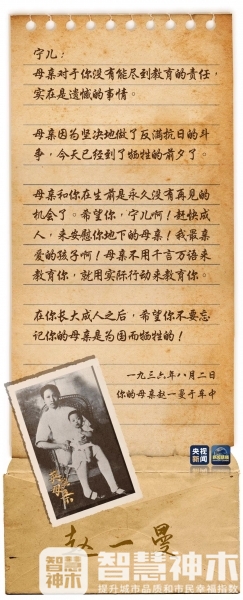 宁儿：
母亲对于你没有能尽到教育的责任，
实在是遗憾的事情。
母亲因为坚决地做了反满抗日的斗
争，今天已经到了牺牲的前夕了。
母亲和你在生前是永久没有再见的
机会了。希望你，宁儿啊！赶快成
人，来安慰你地下的母亲！我最亲
爱的孩子啊！母亲不用千言万语来
教育你，就用实际行动来教育你。
在你长大成人之后，希望你不要忘
记你的母亲是为国而牺牲的！
一九三六年八月二日
你的母亲赵一曼于车中
央视
新闻
赵一曼
智慧神木
智慧神木
提升城市品质和市民幸福指数